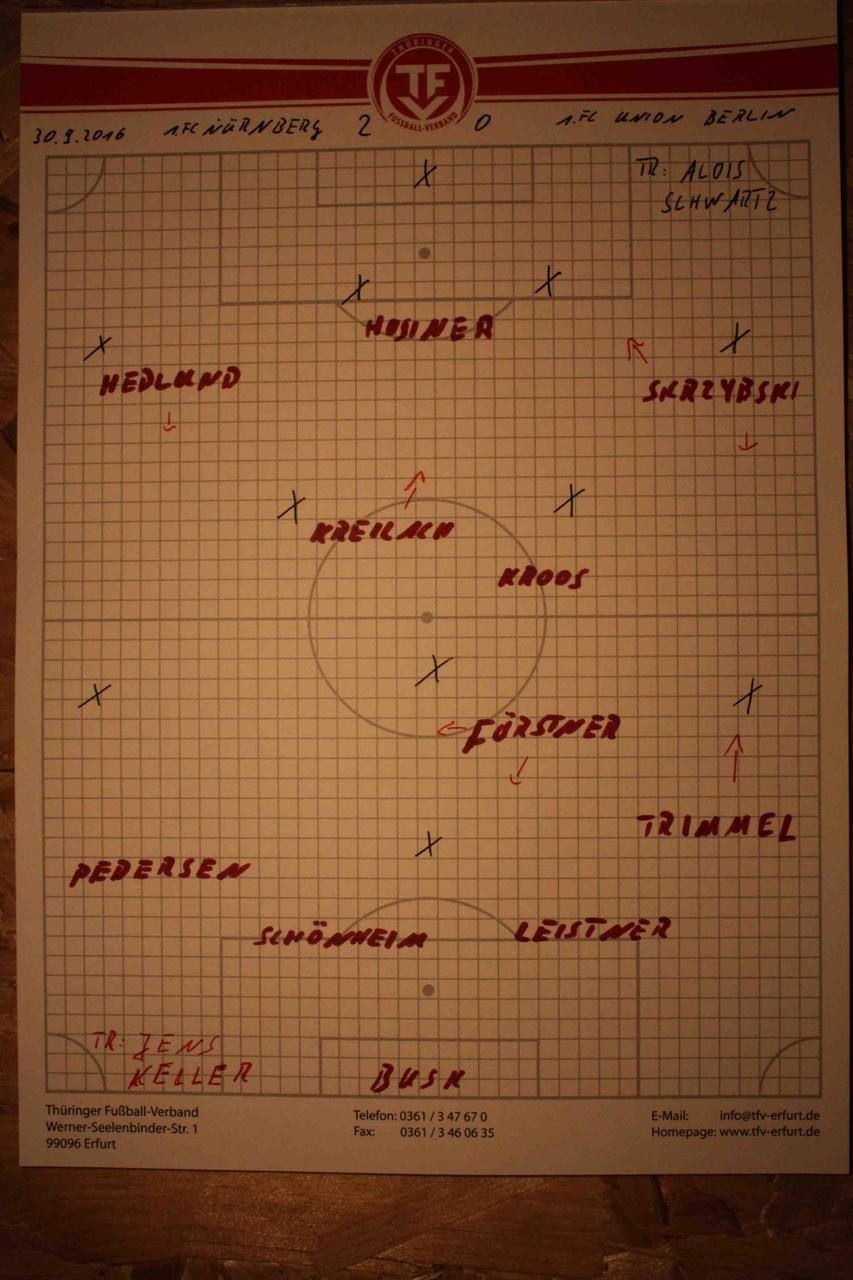 THÜRINGER
TFV
FUSSBALL-VERBAND
30.9.2016 1.FC NÜRNBERG 2 0 1.FC UNION BERLIN
TR: ALOIS
SCHWARTZ
HOSINER
HEDLUND
SKRZYBSKI
KREILACH
KROOS
FÜRSTNER
TRIMMEL
PEDERSEN
SCHÖNHEIM LEISTNER
TR: JENS
KELLER
BUSK
Thüringer Fußball-Verband
Werner-Seelenbinder-Str. 1
99096 Erfurt
Telefon: 0361 / 3 47 67 0
Fax: 0361 / 3 46 06 35
E-Mail: info@tfv-erfurt.de
Homepage: www.tfv-erfurt.de